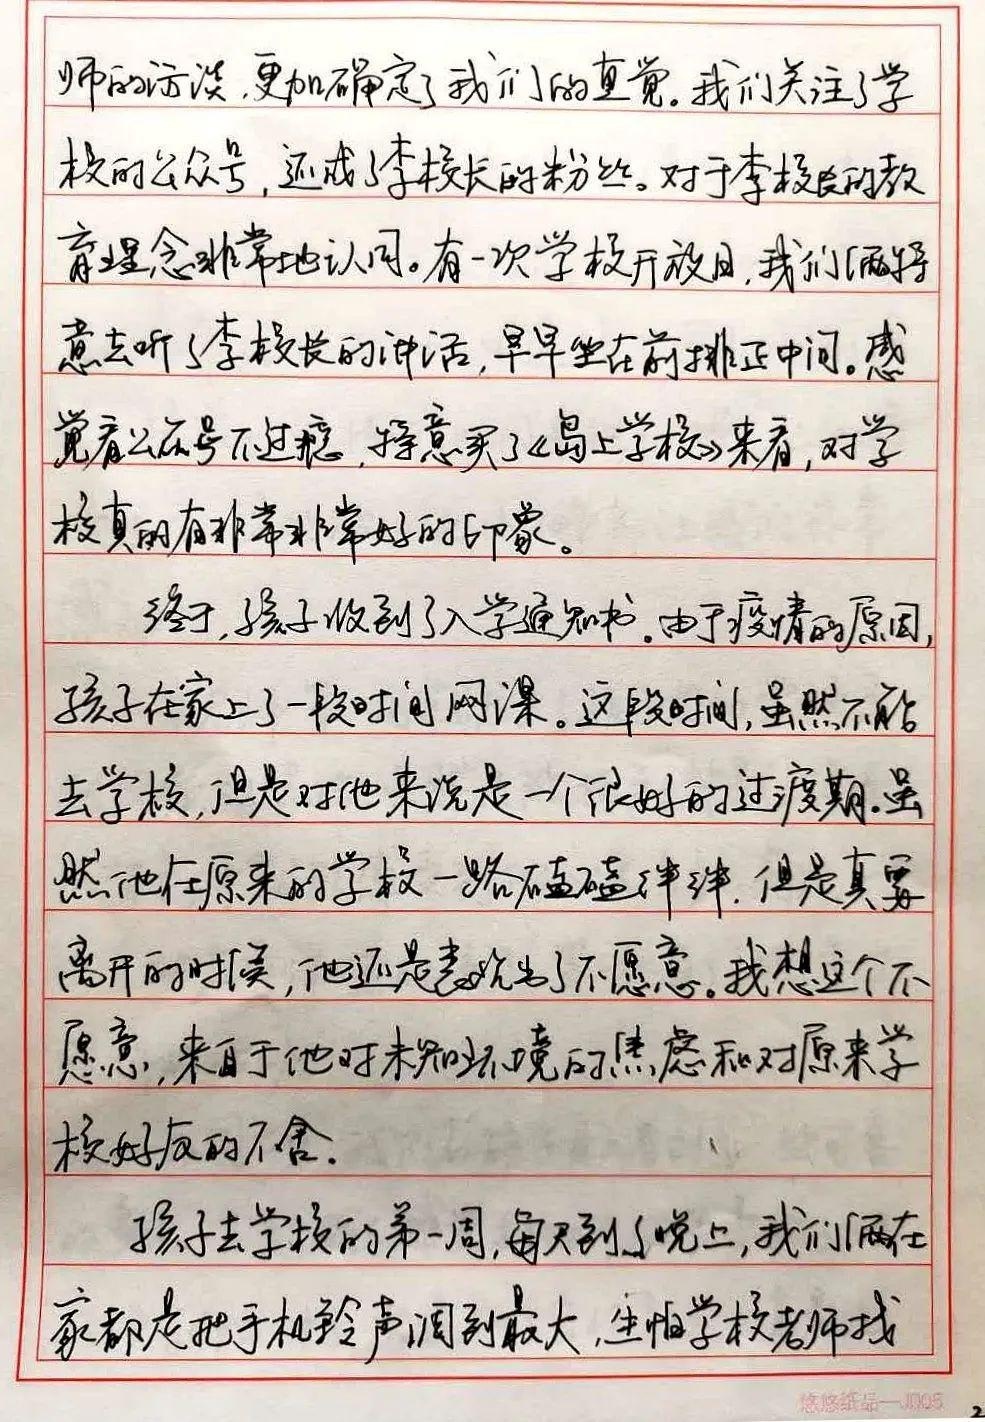 师的访谈，更加确定了我们的直觉。我们关注了学
校的公众号，还成了李校长的粉丝。对于李校长的教
育理念非常地认同。有一次学校开放日，我们俩特
意去听了李校长的讲话，早早坐在前排正中间。感
觉看公众号不过瘾，特意买了《岛上学校》来看，对学
校真的有非常非常好的印象。
终于，孩子收到了入学通知书。由于疫情的原因，
孩子在家上了一段时间网课。这段时间，虽然不能
去学校，但是对他来说是一个很好的过渡期。虽
然他在原来的学校一路磕磕绊绊，但是真要
离开的时候，他还是表现出了不愿意。我想这个不
愿意，来自于他对未知环境的焦虑和对原来学
校好友的不舍。
孩子去学校的第一周，每天到了晚上，我们俩在
家都是把手机铃声调到最大，生怕学校老师找
悠悠纸品—J1105
2